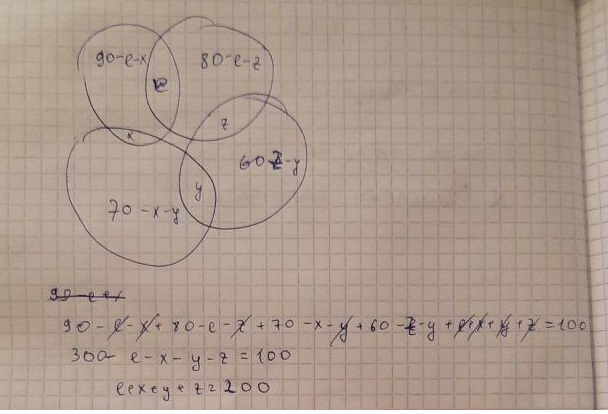 90-e-x
80-e-z
e
z
x
60-z-y
y
70-x-y
90-e-x
90-e-x+80-e-z+70-x-y+60-z-y+e+x+y+z=100
300-e-x-y-z=100
e+x+y+z=200